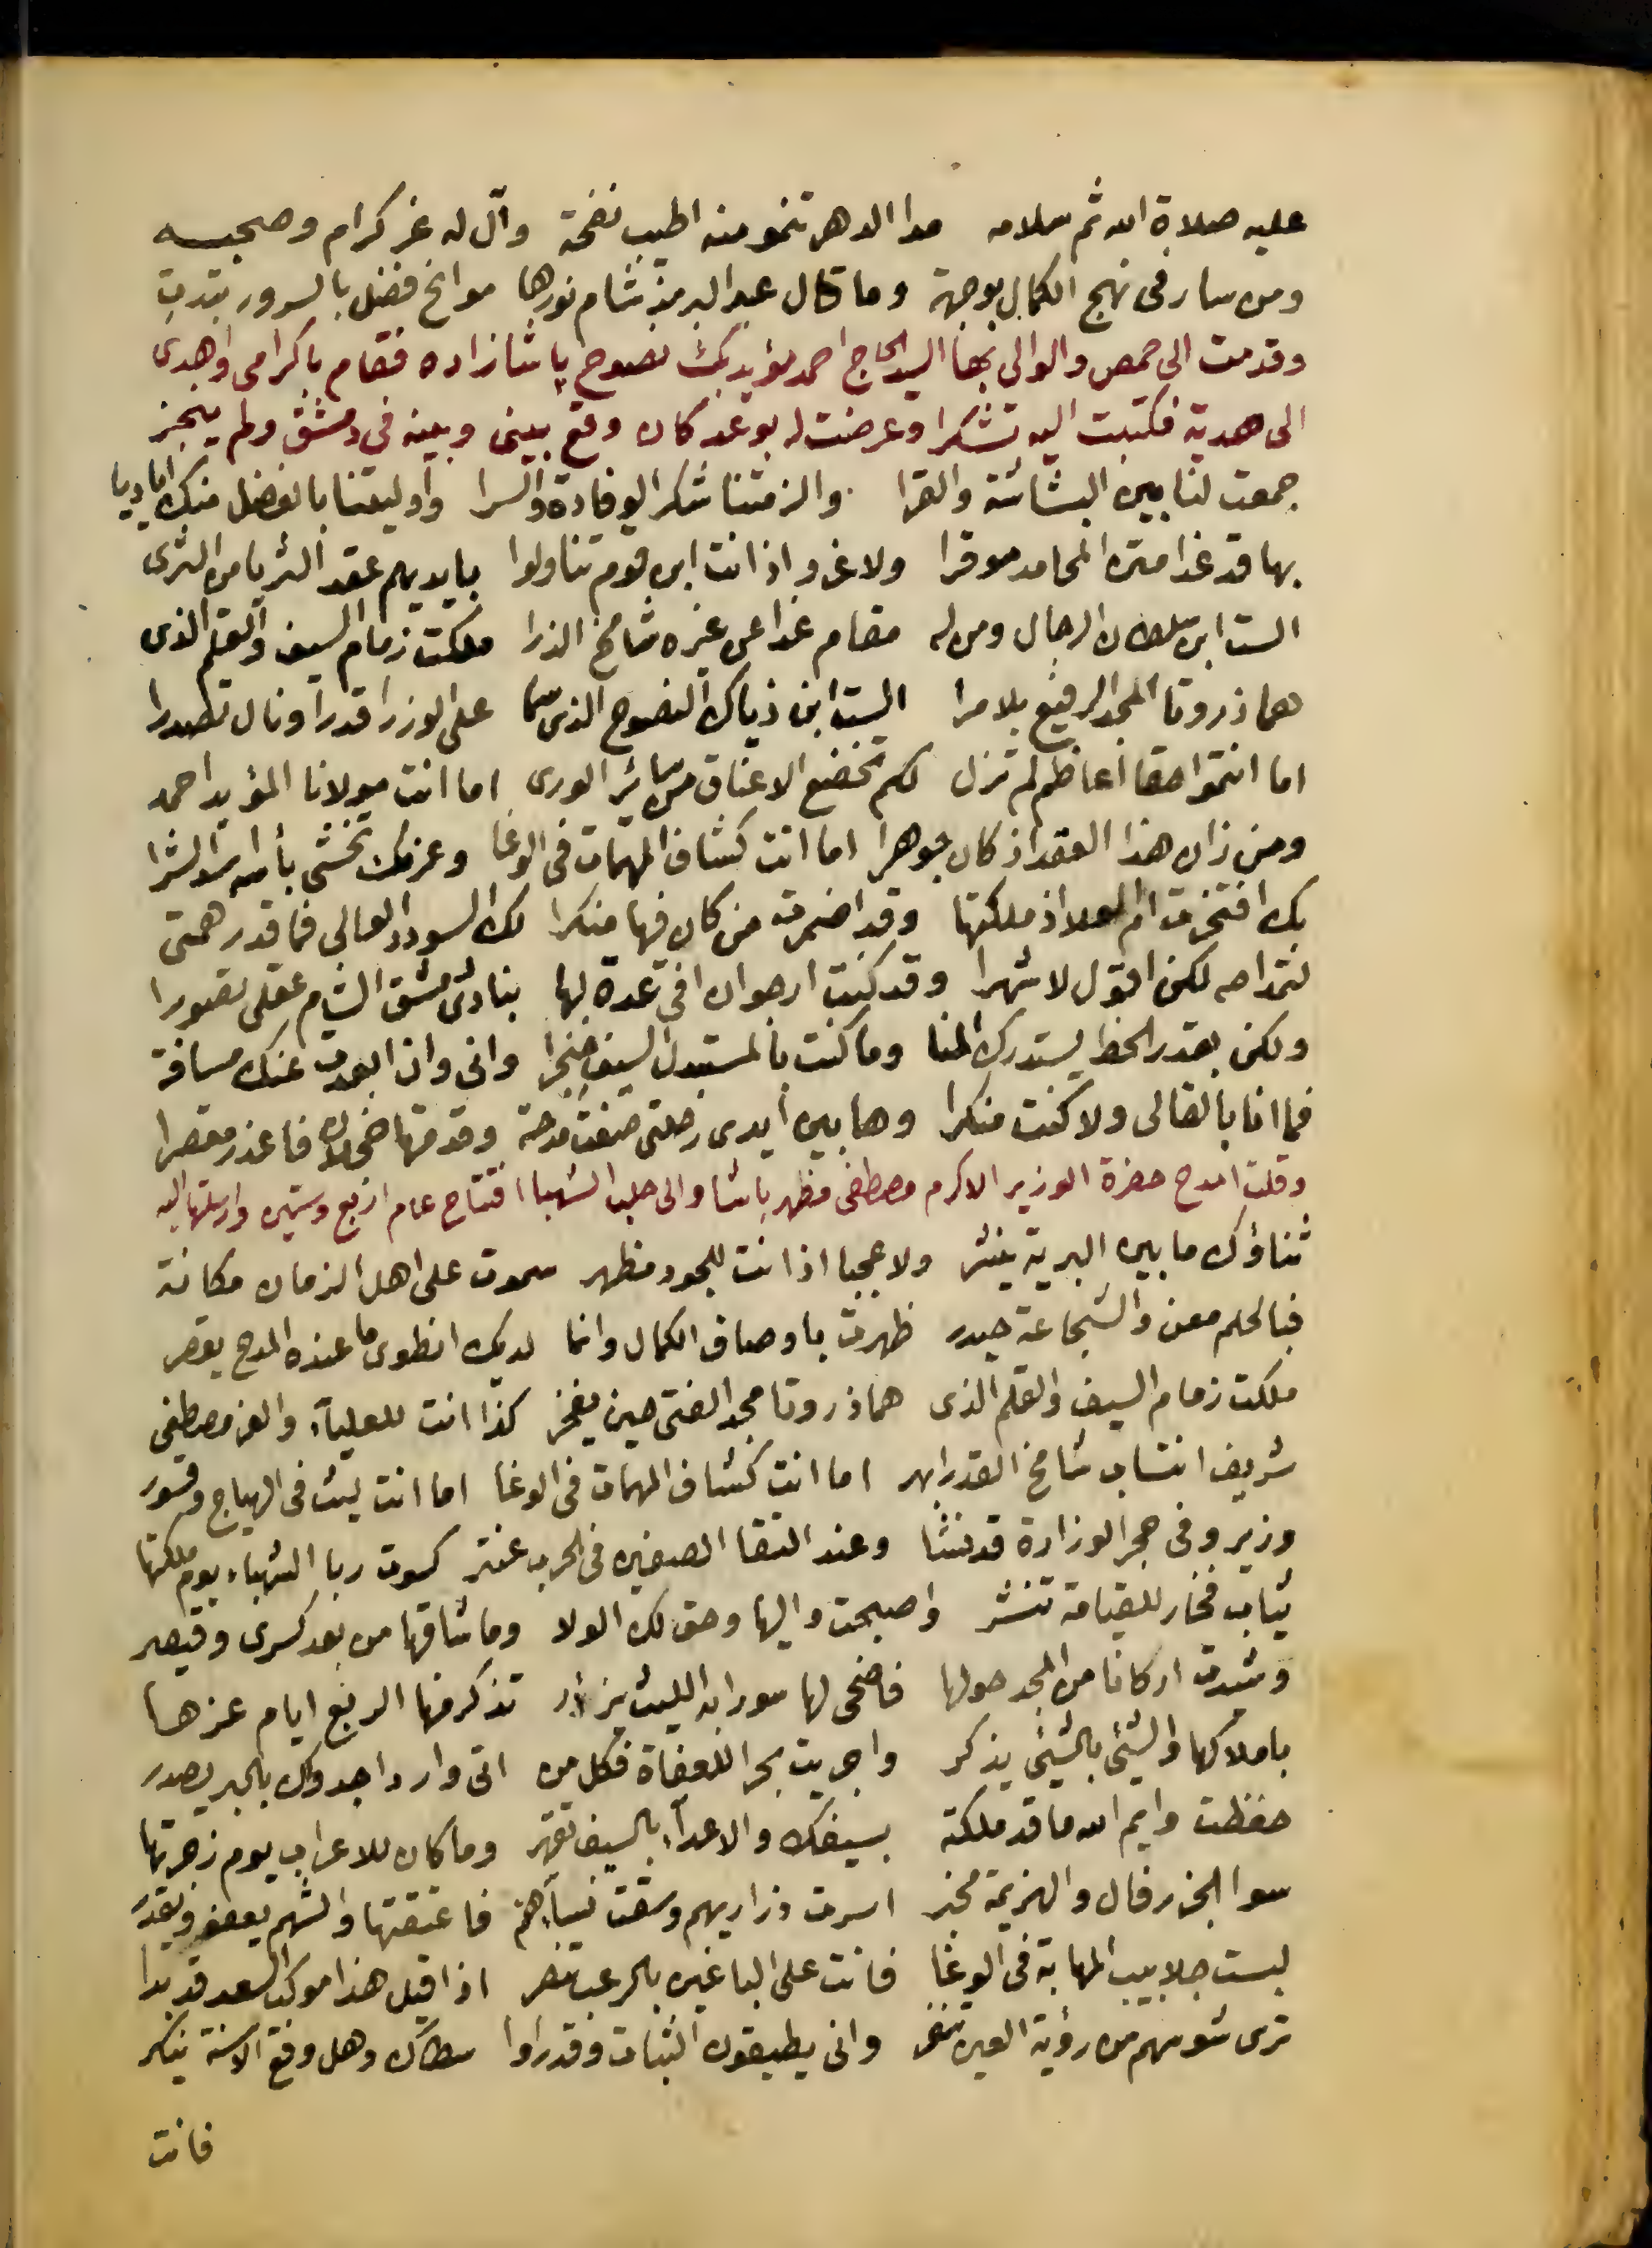 عليه صلاة الله ثم سلامه مدا الدهر تنمو منه اطيب نفحة وآل له غر كرام وصحبه
ومن سار فى نهج الكمال بوجهة وما قال عبد البر مذ شام نورها موانح فضل بالسرور تبدت
وقدمت الى حمص والوالى بها السيد الحاج احمد مؤيد بك نصوح پاشا زاده فقام باكرامى واهدى
الى هدية فكتبت اليه تشكرا وعرضت له بوعد كان وقع بينى وبينه فى دمشق ولم ينجز
جمعت لنا بين البشاشة والقرا والزمتنا شكر الوفادة والسرا واوليتنا بالفضل منك اياديا
بها قد غدا متن المحامد موقرا ولا غرو اذ انت ابن قوم تناولوا بايديهم عقد الثريا من الثرى
الست ابن سلطان الرجال ومن له مقام غدا عن غيره شامخ الذرا ملكت زمام السيف والقلم الذى
هما ذروتا المجد الرفيع بلا مرا الست ابن ذياك النصوح الذى سما على الوزرا قدرا ونال تصدرا
اما انتموا حقا اعاظم لم تزل لكم تخضع الاعناق من سائر الورى اما انت مولانا المؤيد احمد
ومن زان هذا العقد اذ كان جوهرا اما انت كشاف المهمات فى الوغا وعزمك تخشى بأسه اسد الشرا
بك افتخرت ام العلا اذ ملكتها وقد اضمرت من كان فيها منكرا لك السودد العالى فما قدر همتى
لتمداحه لكن اقول لاشهرا وقد كنت ارجو ان افى عدة لها بنادى دمشق الشام عقلى تصورا
ولكن بقدر الحظ يستدرك المنا وما كنت بالمستبدل السيف خنجرا وانى وان ابعدت عنك مسافة
فما انا بالقالى ولا كنت منكرا وها بين ايدى رحلتى صغت مدحة وقدمتها ضحى فاعذر مقصرا
وقلت امدح حضرة الوزير الاكرم مصطفى مظهر باشا والى حلب الشهبا افتتاح عام اربع وستين وارسلتها اليه
ثناؤك ما بين البرية ينشر ولا عجبا اذ انت للجود مظهر سموت على اهل الزمان مكانة
فبالحلم معن والشجاعة حيدر ظهرت باوصاف الكمال وانما لديك انطوى ما عنده المدح يقصر
ملكت زمام السيف والقلم الذى هما ذروتا مجد الفتى حين يفخر كذا انت للعلياء والعز مصطفى
شريف انتساب شامخ القدر ابهر اما انت كشاف المهمات فى الوغا اما انت ليث فى الهياج وقسور
وزير وفى حجر الوزارة قد نشا وعند التقا الصفين فى الحرب عنتر كسوت ربا الشهباء يوم ملكتها
ثياب فخار للقيامة تنشر واصبحت واليها وحق لك الولا وما شاقها من بعد كسرى وقيصر
وشيدت اركانا من المجد حولها فاضحى لها سورا به الليث يزأر تذكر منها الربع ايام عزها
باملاكها والشئ بالشئ يذكر واجريت بحرا للعفاة فكل من اتى واردا جدواك بالجبر يصدر
حفظت وايم الله ما قد ملكته بسيفك والاعداء بالسيف تقهر وما كان للاعراب يوم زحرتها
سوا الجزر فال والهزيمة مخبر اسرت ذراريهم وسقت نساءهم فاعتقتها والشهم يعفو ويقدر
لبست جلابيب المهابة فى الوغا فانت على الباغين بالرعب تنصر اذا قيل هذا موكب السعد قد بدا
ترى شوسهم من رؤية العين تنفر وانى يطيقون الثبات وقد راوا سطاك وهل وقع الاسنة ينكر
فانت